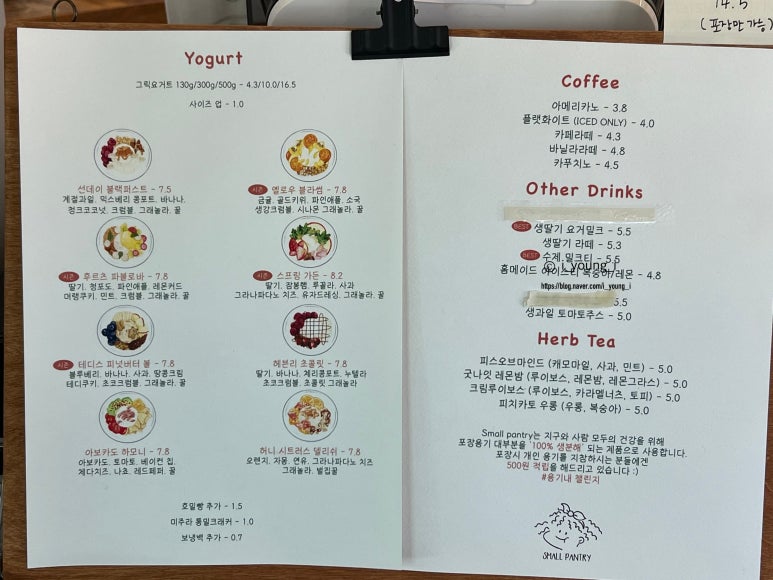 14.5
(포장만 가능)
Yogurt
그릭요거트 130g/300g/500g - 4.3/10.0/16.5
사이즈 업 - 1.0
선데이 블랙퍼스트 - 7.5
계절과일, 믹스베리 콩포트, 바나나,
청크코코넛, 크럼블, 그래놀라, 꿀
시즌 옐로우 블라썸 - 7.8
금귤, 골드키위, 파인애플, 소국
생강크럼블, 시나몬 그래놀라, 꿀
시즌 후르츠 파볼로바 - 7.8
딸기, 청포도, 파인애플, 레몬커드
머랭쿠키, 민트, 크럼블, 그래놀라, 꿀
시즌 스프링 가든 - 8.2
딸기, 잠봉햄, 루꼴라, 사과
그라나파다노 치즈, 유자드레싱, 그래놀라, 꿀
시즌 테디스 피넛버터 볼 - 7.8
블루베리, 바나나, 사과, 땅콩크림
테디쿠키, 초코크럼블, 그래놀라, 꿀
헤븐리 초콜릿 - 7.8
딸기, 바나나, 체리콩포트, 누텔라
초코크럼블, 초콜릿 그래놀라
아보카도 하모니 - 7.8
아보카도, 토마토, 베이컨 칩,
체다치즈, 나초, 레드페퍼, 꿀
허니 시트러스 델리쉬 - 7.8
오렌지, 자몽, 연유, 그라나파다노 치즈
그래놀라, 벌집꿀
호밀빵 추가 - 1.5
미주라 통밀크래커 - 1.0
보냉백 추가 - 0.7
Coffee
아메리카노 - 3.8
플랫화이트 (ICED ONLY) - 4.0
카페라떼 - 4.3
바닐라라떼 - 4.8
카푸치노 - 4.5
Other Drinks
BEST 생딸기 요거밀크 - 5.5
생딸기 라떼 - 5.3
BEST 수제 밀크티 - 5.5
© i_young_i
홈메이드 아이스티 복숭아/레몬 - 4.8
https://blog.naver.com/i_young_i
5.5
생과일 토마토주스 - 5.0
Herb Tea
피스오브마인드 (캐모마일, 사과, 민트) - 5.0
굿나잇 레몬밤 (루이보스, 레몬밤, 레몬그라스) - 5.0
크림루이보스 (루이보스, 카라멜너츠, 토피) - 5.0
피치카토 우롱 (우롱, 복숭아) - 5.0
Small pantry는 지구와 사람 모두의 건강을 위해
포장용기 대부분을 '100% 생분해' 되는 제품으로 사용합니다.
포장시 개인 용기를 지참하시는 분들에겐
500원 적립을 해드리고 있습니다 :)
#용기내 챌린지
SMALL PANTRY